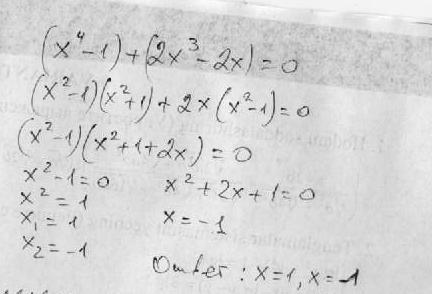 (x⁴-1)+(2x³-2x)=0
(x²-1)(x²+1)+2x(x²-1)=0
(x²-1)(x²+1+2x)=0
x²-1=0 x²+2x+1=0
x²=1 x=-1
x₁=1
x₂=-1
Ответ: x=1, x=-1